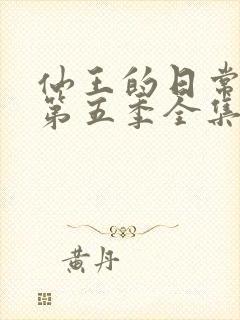 仙王的日常
第五季全集
黄丹